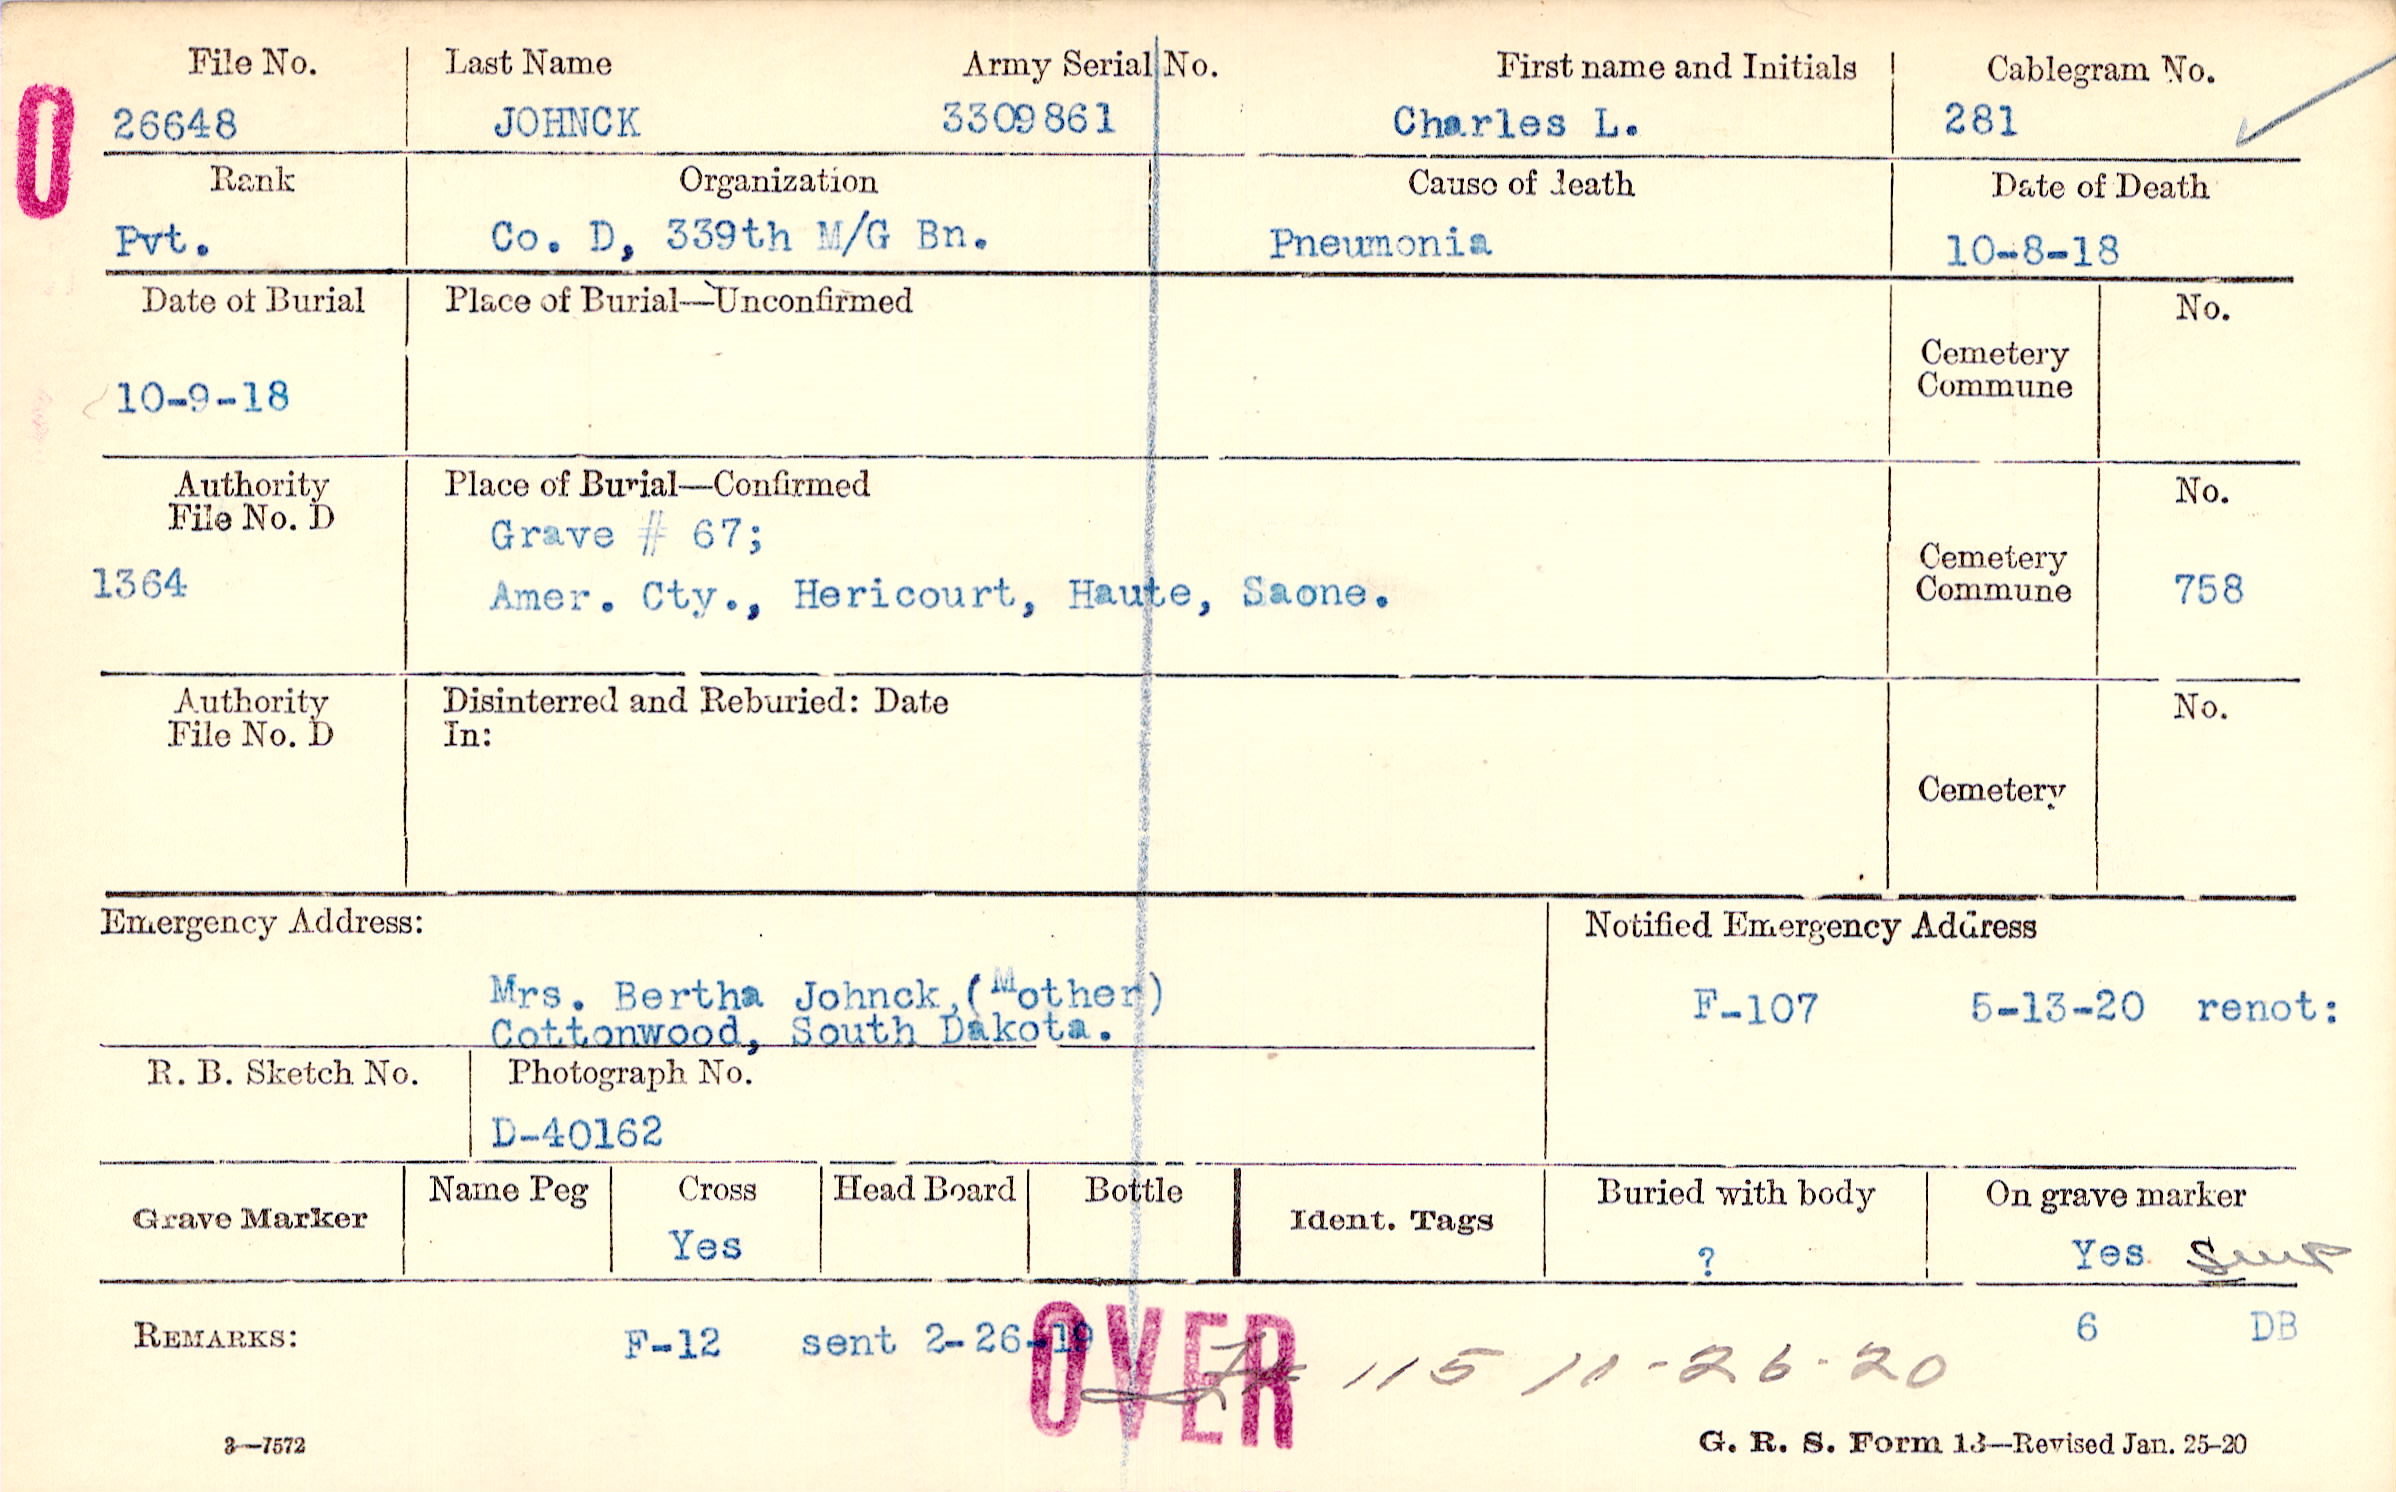 File No. Last Name Army Serial No. First name and Initials Cablegram No.
O
26648 JOHNCK 3309861 Charles L. 281
Rank Organization Cause of death Date of Death
Pvt. Co. D, 339th M/G Bn. Pneumonia 10-8-18
Date of Burial Place of Burial—Unconfirmed No.
Cemetery
Commune
10-9-18
Authority Place of Burial—Confirmed No.
File No. D
Grave # 67;
Cemetery
1364 Amer. Cty., Hericourt, Haute, Saone. Commune 758
Authority Disinterred and Reburied: Date No.
File No. D In:
Cemetery
Emergency Address: Notified Emergency Address
Mrs. Bertha Johnck,(Mother) F-107 5-13-20 renot:
Cottonwood, South Dakota.
R. B. Sketch No. Photograph No.
D-40162
Name Peg Cross Head Board Bottle Buried with body On grave marker
Grave Marker Ident. Tags
Yes ? Yes
REMARKS: F-12 sent 2-26-19 6 DB
OVER
115 11-26-20
3—7572 G. R. S. Form 13—Revised Jan. 25-20